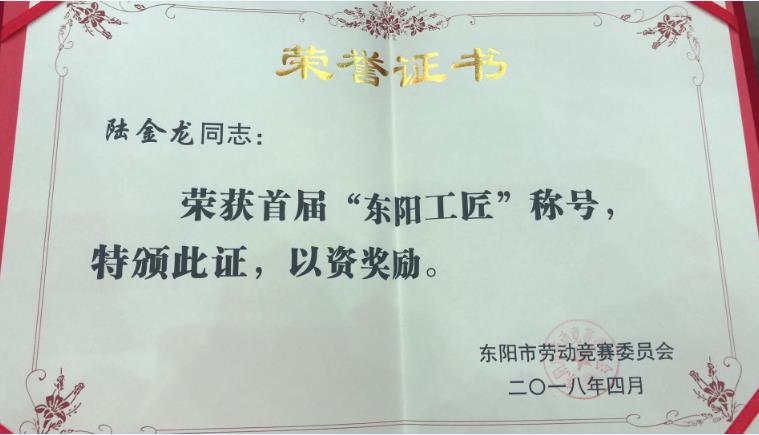 荣誉证书
陆金龙同志：
荣获首届“东阳工匠”称号，
特颁此证，以资奖励。
东阳市劳动竞赛委员会
二〇一八年四月